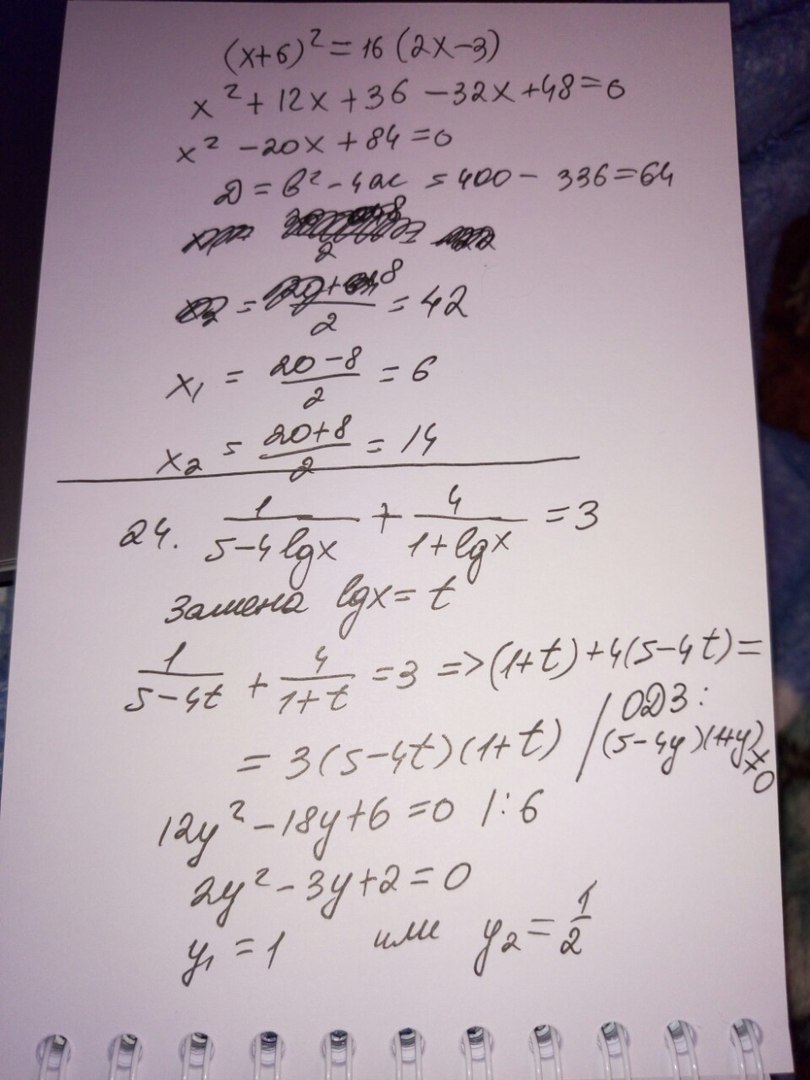 (x+6)² = 16(2x-3)
x² + 12x + 36 - 32x + 48 = 0
x² - 20x + 84 = 0
D = b² - 4ac = 400 - 336 = 64
2
x₂ = 20+8/2 = 42
x₁ = 20-8/2 = 6
x₂ = 20+8/2 = 14
24. 1/5-4lgx + 4/1+lgx = 3
Замена lgx = t
1/5-4t + 4/1+t = 3 => (1+t)+4(5-4t) =
= 3(5-4t)(1+t) / ОДЗ: (5-4y)(1+y) ≠ 0
12y² - 18y + 6 = 0 |:6
2y² - 3y + 2 = 0
y₁ = 1 или y₂ = 1/2